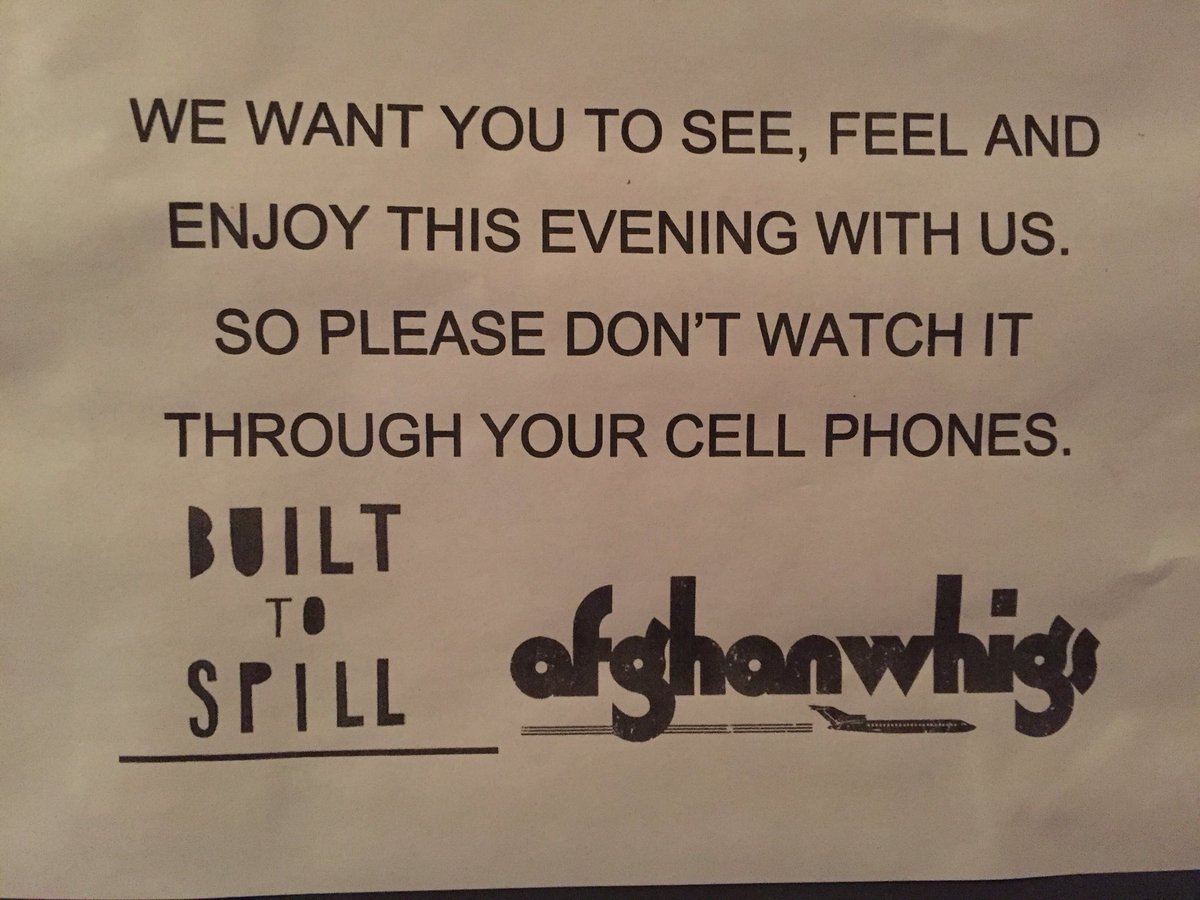 WE WANT YOU TO SEE, FEEL AND
ENJOY THIS EVENING WITH US.
SO PLEASE DON'T WATCH IT
THROUGH YOUR CELL PHONES.
BUILT
TO
SPILL
afghanwhigs